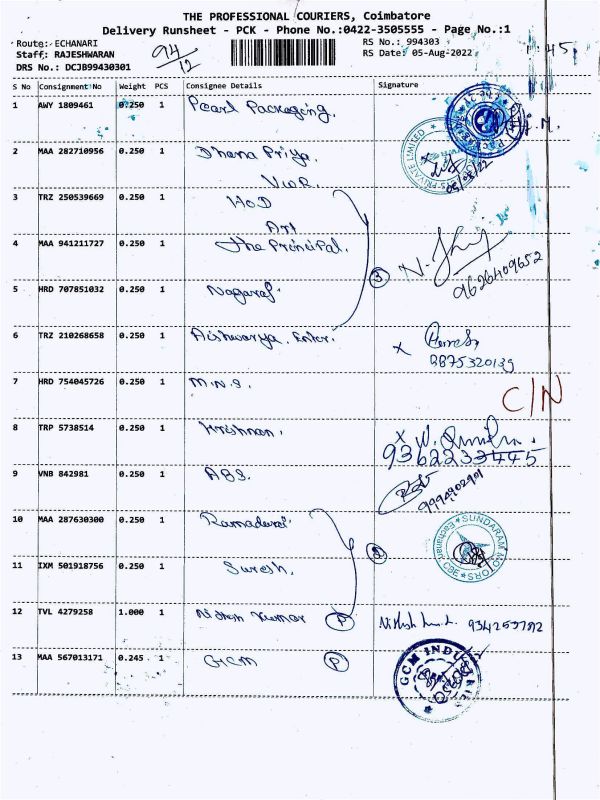 THE PROFESSIONAL COURIERS, Coimbatore
Delivery Runsheet - PCK - Phone No.:0422-3505555 - Page No.:1
Route: ECHANARI
Staff: RAJESHWARAN
DRS No.: DCJB99430301
94/12
RS No.: 994303
RS Date: 05-Aug-2022
1:45
S No Consignment No Weight PCS Consignee Details Signature
1 AWY 1809461 0.250 1 Pearl Packaging.
2 MAA 282710956 0.250 1 Dhana Priya.
PRIVATE LIMITED
3 TRZ 250539669 0.250 1 HOD
Art
4 MAA 941211727 0.250 1 The Principal.
3
9626409652
5 HRD 707851032 0.250 1 Nagaraj.
6 TRZ 210268658 0.250 1 Aishwarya. Enter.
X
8875320139
7 HRD 754045726 0.250 1 M.N.S.
C/N
8 TRP 5738514 0.250 1 Krishnan.
X
9362233445
9 VNB 842981 0.250 1 ABS.
9994902901
10 MAA 287630300 0.250 1 Ramadurai.
SUNDARAM MOTORS
Eachanari CBE
11 IXM 501918756 0.250 1 Suresh.
12 TVL 4279258 1.000 1 Nitish Kumar P
13 MAA 567013171 0.245 1 GCM P
GCM INDUSTRIES